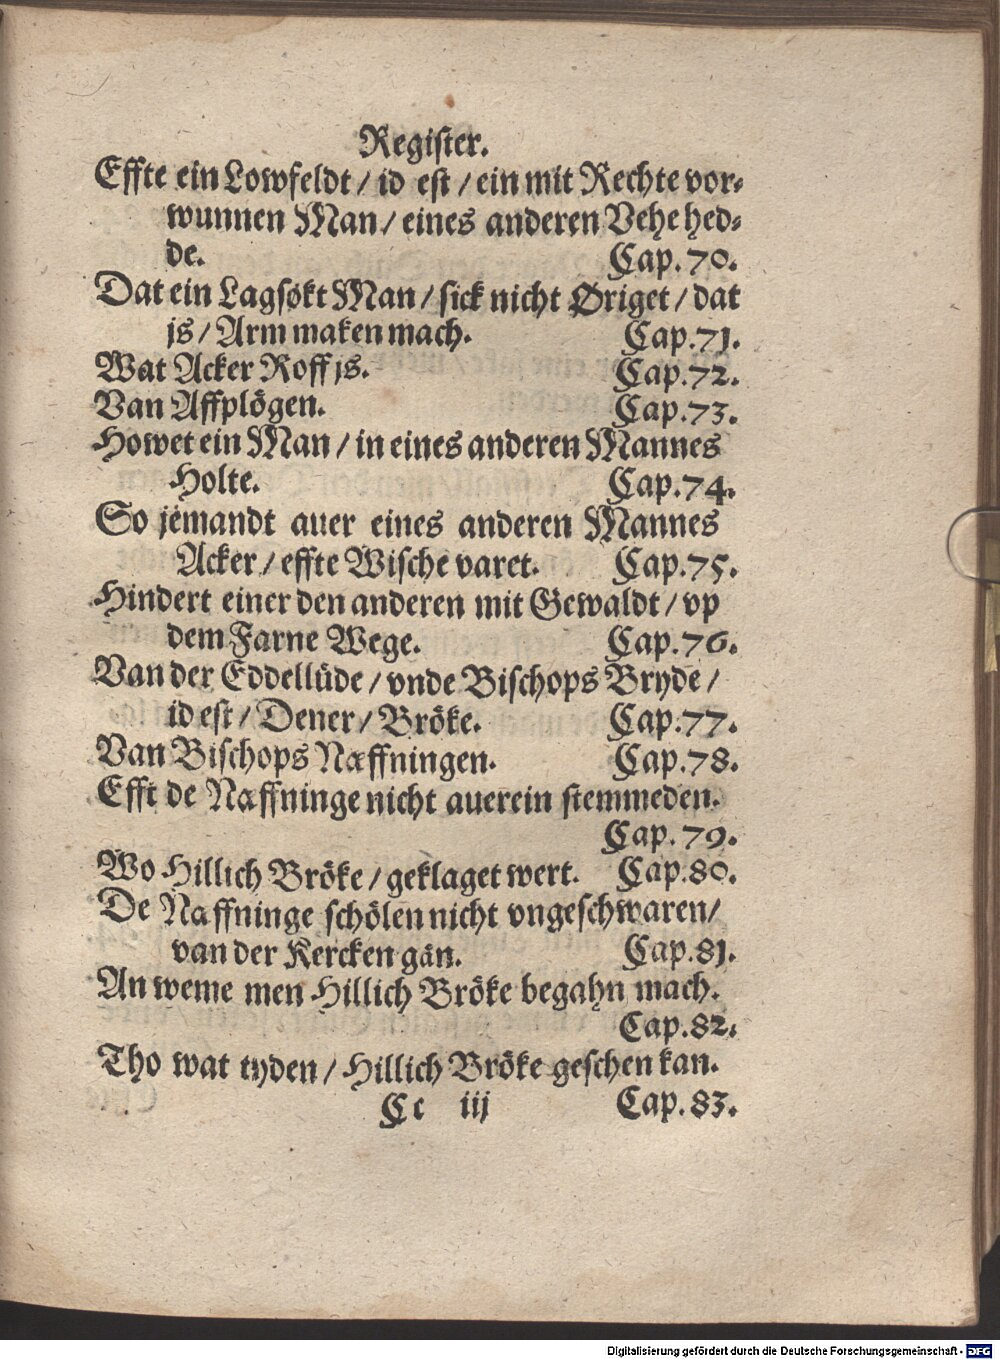 Register.
Effte ein Lowfeldt / id est / ein mit Rechte vor⸗
wunnen Man / eines anderen Vehe hed⸗
de. Cap. 70.
Dat ein Lagsøkt Man / sick nicht Øriget / dat
js / Arm maken mach. Cap. 71.
Wat Acker Roff js. Cap. 72.
Van Affplögen. Cap. 73.
Howet ein Man / in eines anderen Mannes
Holte. Cap. 74.
So jemandt auer eines anderen Mannes
Acker / effte Wische varet. Cap. 75.
Hindert einer den anderen mit Gewaldt / vp
dem Farne Wege. Cap. 76.
Van der Eddellüde / vnde Bischops Bryde /
id est / Dener / Bröke. Cap. 77.
Van Bischops Næffningen. Cap. 78.
Efft de Næffninge nicht auerein stemmeden.
Cap. 79.
Wo Hillich Bröke / geklaget wert. Cap. 80.
De Næffninge schölen nicht vngeschwaren /
van der Kercken gän. Cap. 81.
An weme men Hillich Bröke begahn mach.
Cap. 82.
Tho wat tyden / Hillich Bröke geschen kan.
Cc iij Cap. 83.
Digitalisierung gefördert durch die Deutsche Forschungsgemeinschaft - DFG